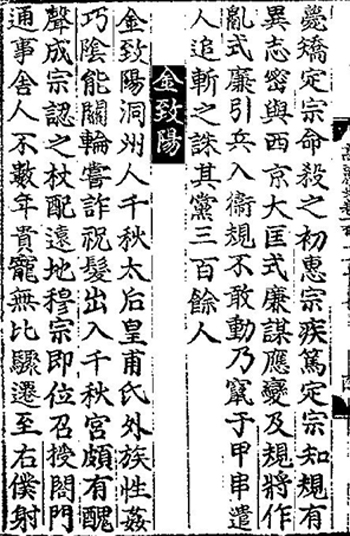 薨矯定宗命殺之初惠宗疾篤定宗知規有
異志密與西京大匡式廉謀應變及規將作
亂式廉引兵入衛規不敢動乃竄于甲串遣
人追斬之誅其黨三百餘人
金致陽
金致陽洞州人千秋太后皇甫氏外族性姦
巧陰能關輪嘗詐祝髮出入千秋宮頗有醜
聲成宗認之杖配遠地穆宗即位召授閤門
通事舍人不數年貴寵無比驟遷至右僕射